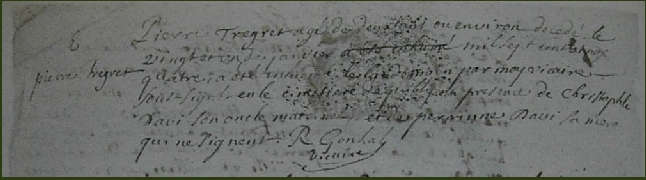 8
pierre tregret
Pierre Tregret agé de deux ans ou environ decedé le
vingt et un de janvier mil sept cent
quatre a été inhumé le par moy vicaire
soussigné en le cimetiere presence de Christophle
Davi son oncle et de perrinne Davi sa mere
qui ne signent. R Gonhal
vicaire